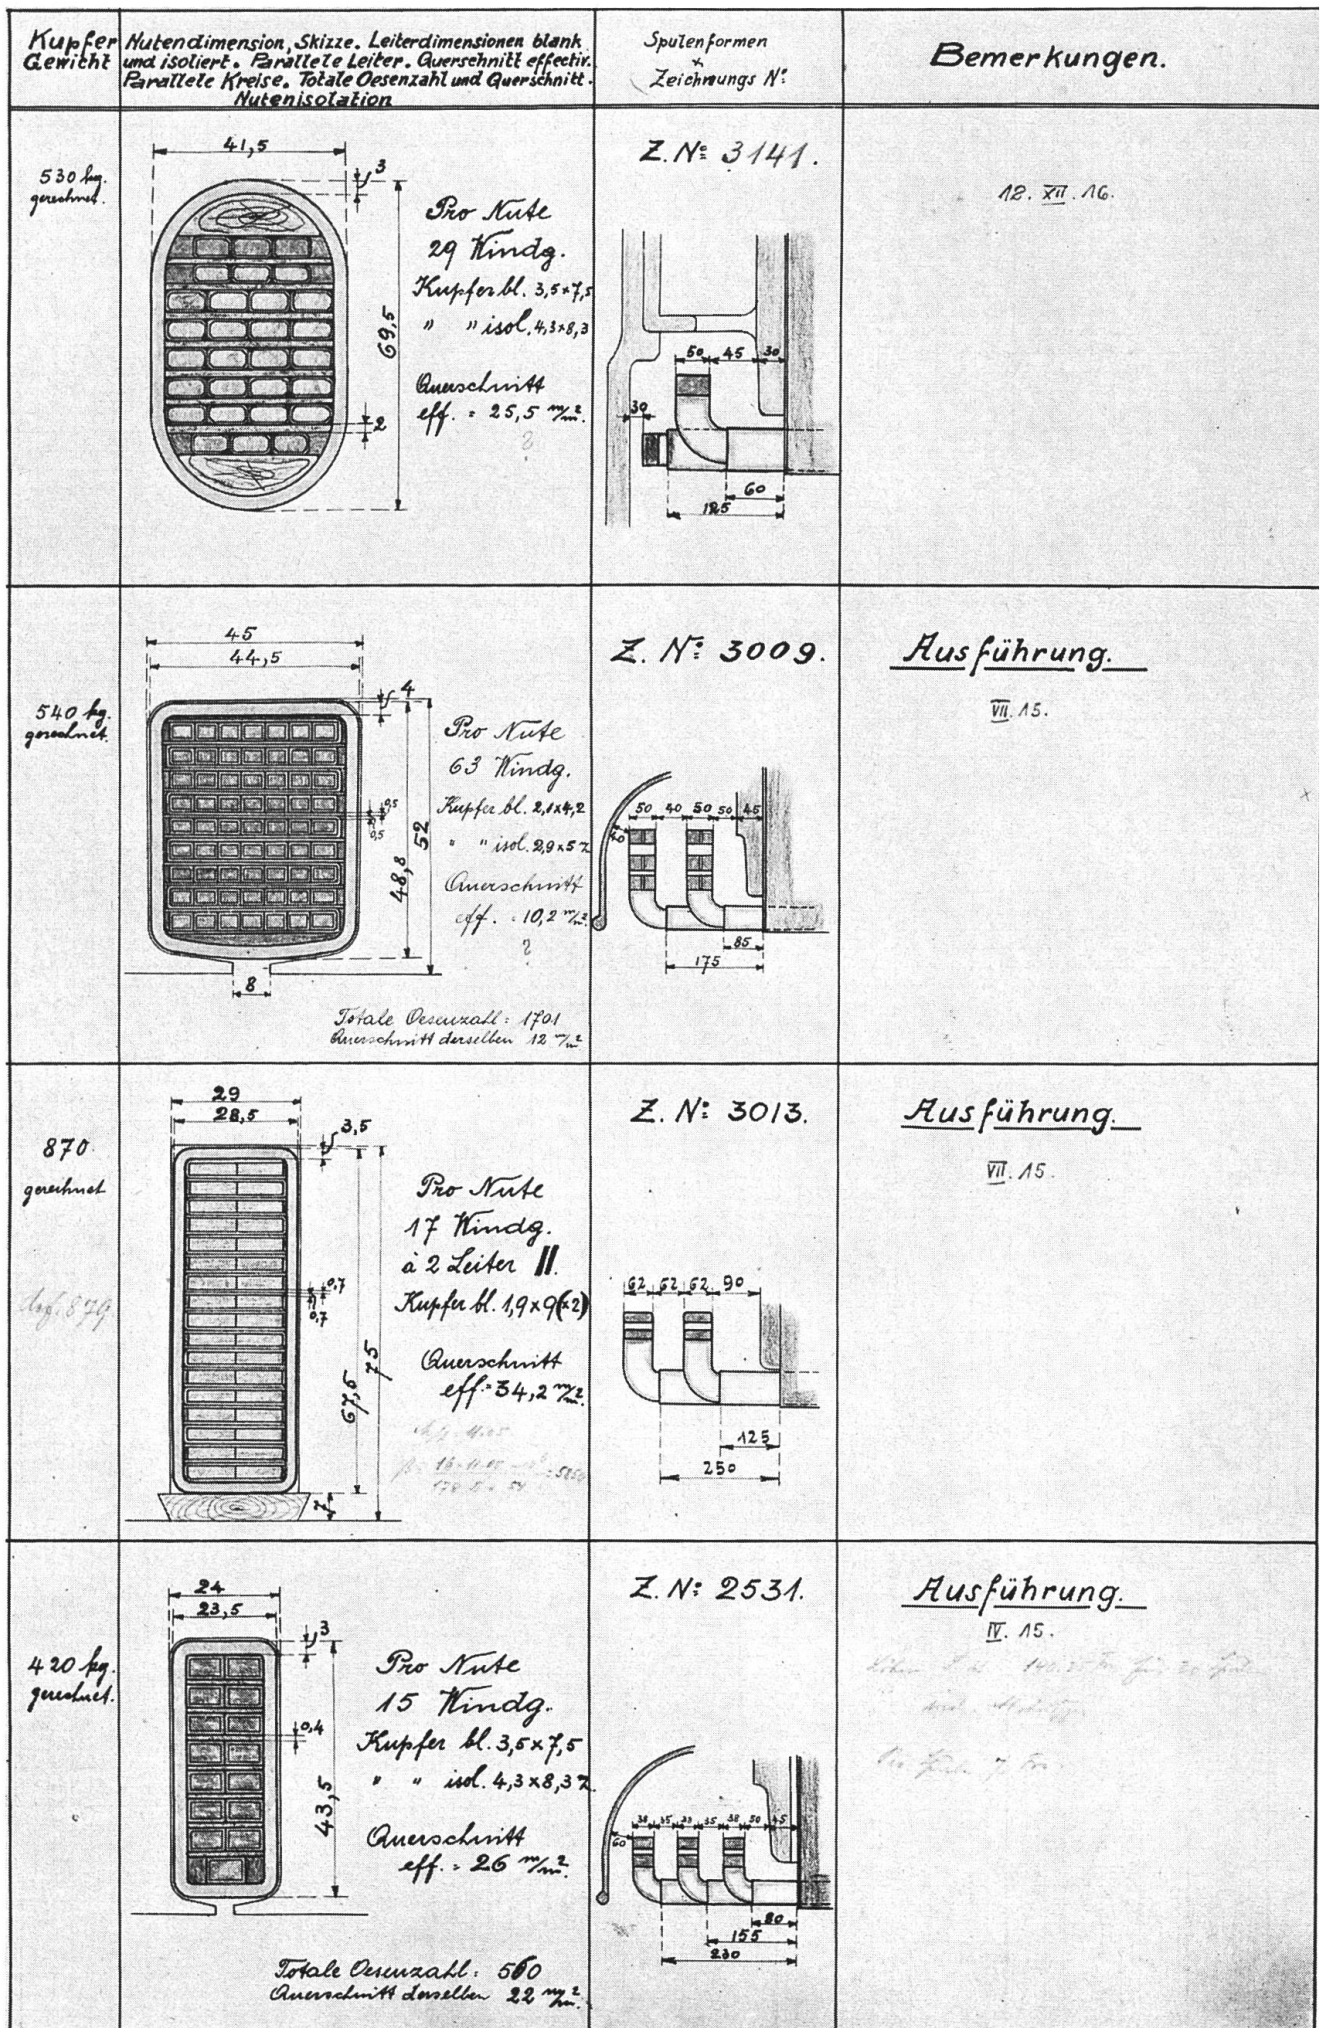 Kupfer
Gewicht
Nutendimension, Skizze. Leiterdimensionen blank
und isoliert. Parallele Leiter. Querschnitt effectiv.
Parallele Kreise. Totale Oesenzahl und Querschnitt.
Nutenisolation
Spulenformen
+
Zeichnungs Nº:
Bemerkungen.
530 kg.
gerechnet.
41,5
3
69,5
2
Pro Nute
29 Windg.
Kupfer bl. 3,5×7,5
" " isol. 4,3×8,3
Querschnitt
eff. = 25,5 m/m².
?
Z. Nº: 3141.
50 45 30
30
60
125
12. XII. 16.
540 kg.
gerechnet.
45
44,5
4
0,5
0,5
48,8
52
8
Pro Nute
63 Windg.
Kupfer bl. 2,1×4,2
" " isol. 2,9×5
Querschnitt
eff. = 10,2 m/m².
?
Totale Oesenzahl: 1701
Querschnitt derselben 12 m/m²
Z. Nº: 3009.
50 40 50 50 45
85
175
Ausführung.
VII. 15.
870
gerechnet
29
28,5
3,5
0,7
0,7
67,5
75
7
Pro Nute
17 Windg.
à 2 Leiter II.
Kupfer bl. 1,9×9(×2)
Querschnitt
eff. = 34,2 m/m².
Z. Nº: 3013.
62 62 62 90
125
250
Ausführung.
VII. 15.
420 kg.
gerechnet.
24
23,5
3
0,4
43,5
Pro Nute
15 Windg.
Kupfer bl. 3,5×7,5
" " isol. 4,3×8,3
Querschnitt
eff. = 26 m/m².
Totale Oesenzahl: 560
Querschnitt derselben 22 m/m².
Z. Nº: 2531.
38 35 35 38 50 45
60
80
155
230
Ausführung.
IV. 15.